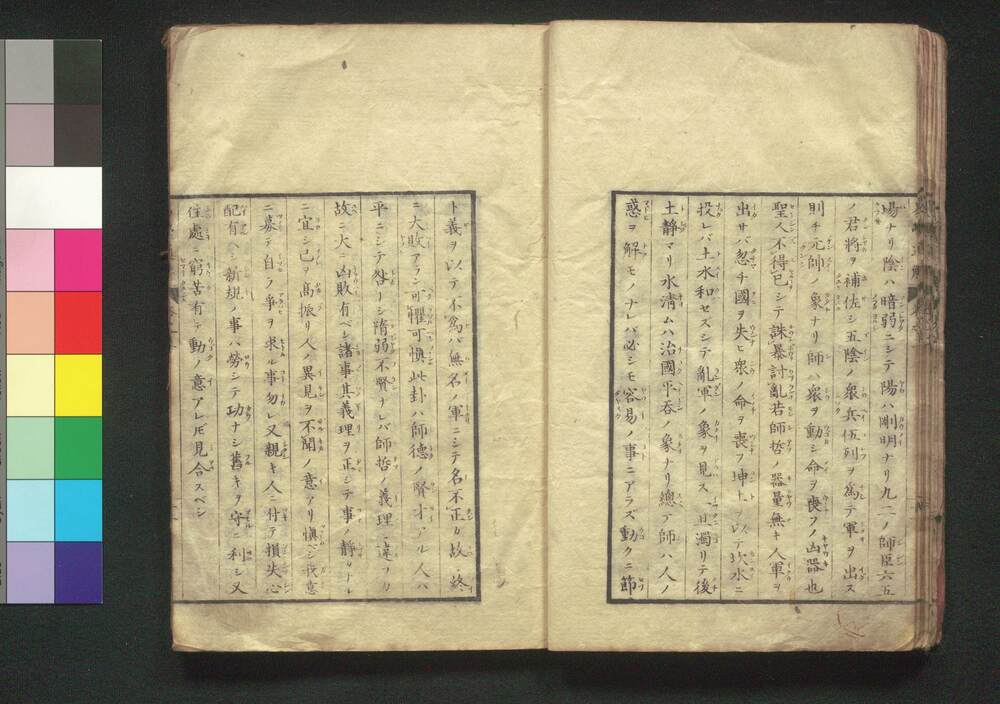 場ナリ陰ハ暗弱ニシテ陽ハ剛明ナリ九二ノ師臣六五
ノ君將ヲ補佐シ五陰ノ衆兵伍列ヲ爲テ軍ヲ出ス
則チ元帥ノ象ナリ師ハ衆ヲ動シ命ヲ喪フノ凶器也
聖人不得已シテ誅暴討亂若師哲ノ器量無キ人軍ヲ
出サバ忽チ國ヲ失ヒ衆ノ命ヲ喪フ坤土ヲ以テ坎水ニ
投レバ土水和セズシテ亂軍ノ象ヲ見ス一旦濁リテ後
土靜マリ水清ムハ治國平呑ノ象ナリ總テ師ハ人ノ
惑ヲ解モノナレバ必シモ容易ノ事ニアラズ動クニ節
ト義ヲ以テ不爲バ無名ノ軍ニシテ名不正カ故ニ終
ニ大敗アラン可懼可愼此卦ハ師德ノ賢才アル人ハ
平ニシテ咎ナシ隋弱不賢ナレバ師哲ノ義理ニ違フカ
故ニ大ニ凶敗有ベシ諸事其義理ヲ正シテ事ノ靜カナル
ニ宜シ己ヲ高振リ人ノ異見ヲ不聞ノ意アリ愼ベシ我意
ニ募テ自ラ爭ヲ求ル事勿レ又親キ人ニ付テ損失心
配有ベシ新規ノ事ハ勞シテ功ナシ舊キヲ守ニ利シ又
住處ニ窮苦有テ動ノ意アレ𪜈見合スベシ